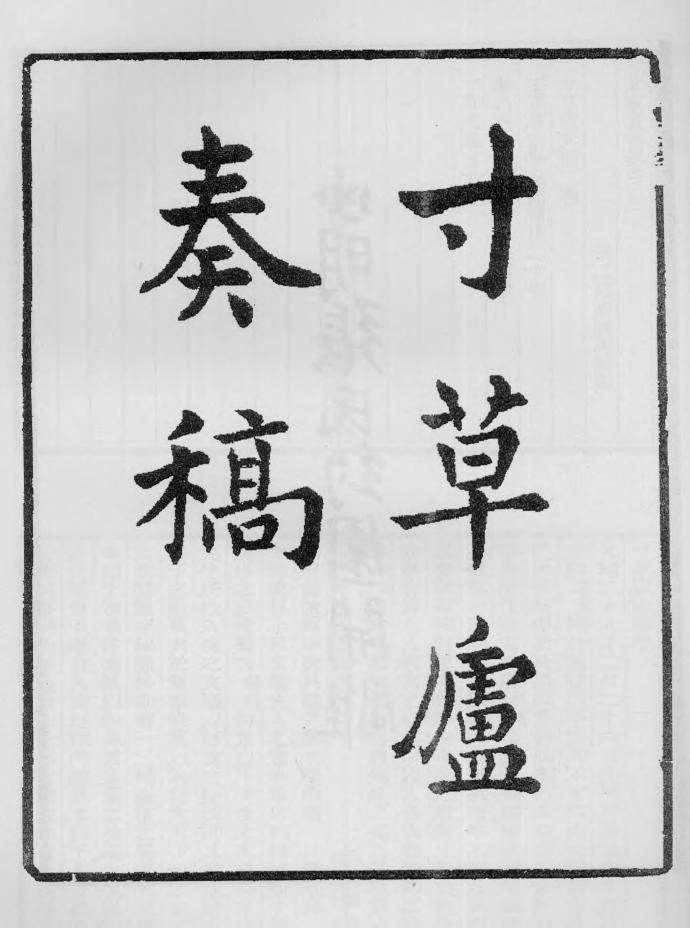 寸草廬
奏稿